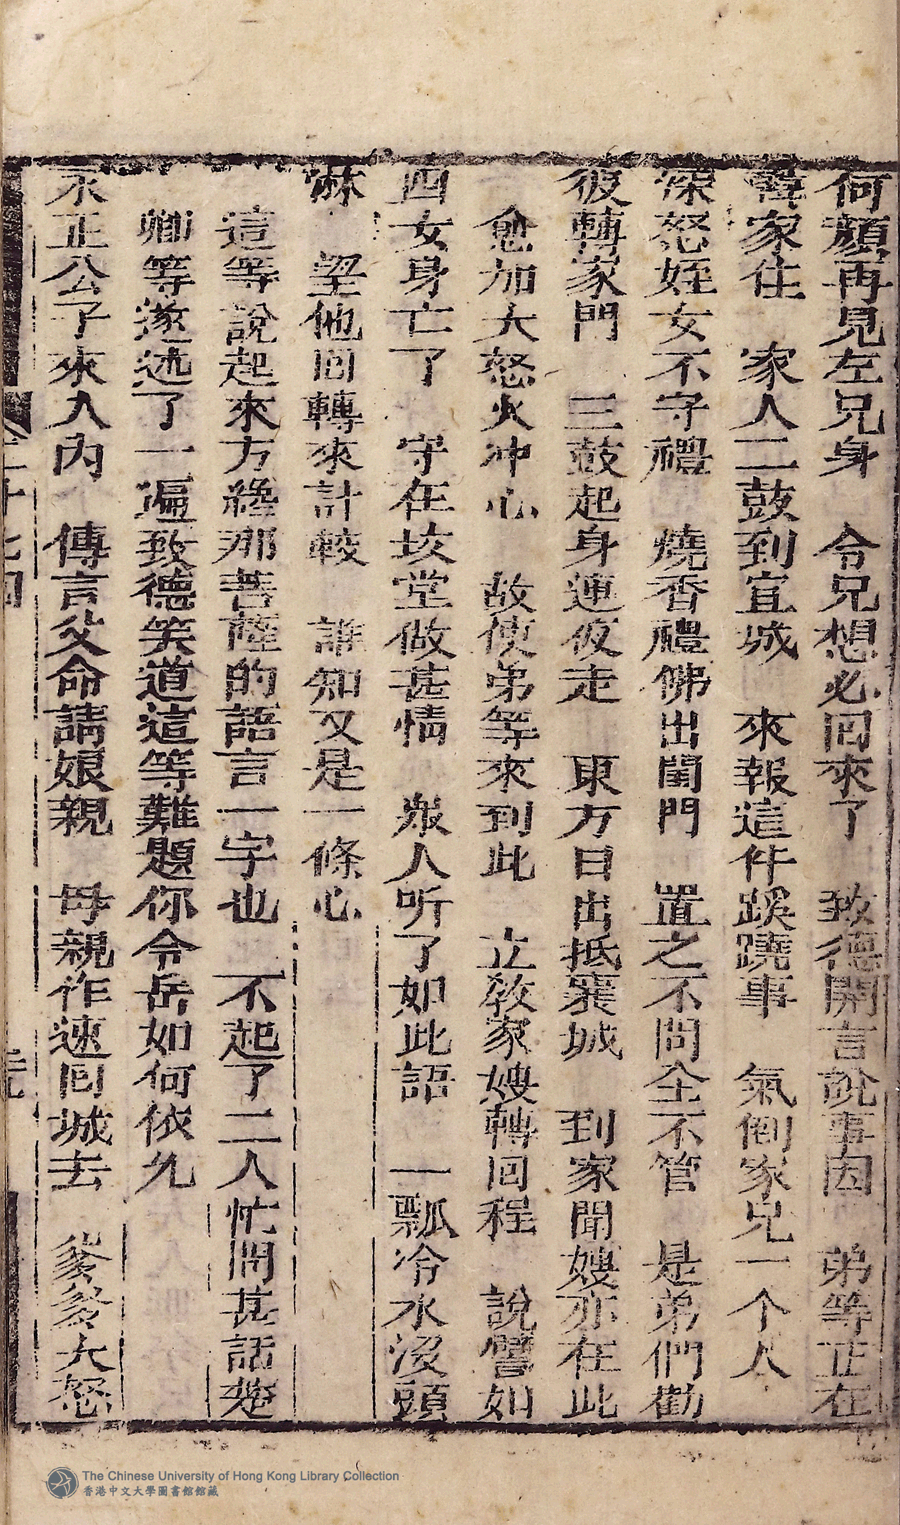 何顏再見左兄身　令兄想必回來了　致德開言說事因　弟等正在
韓家住　家人二鼓到宜城　來報這件蹊蹺事　氣倒家兄一个人
深怒姪女不守禮　燒香禮佛出閨門　置之不問全不管　是弟們勸
彼轉家門　三鼓起身連夜走　東方日出抵襄城　到家聞嫂亦在此
愈加大怒火冲心　故使弟等來到此　立教家嫂轉回程　說譬如
四女身亡了　守在坟堂做甚情　眾人听了如此語　一瓢冷水沒頭
淋　望他回轉來計較　誰知又是一條心
這等說起來方纔那菩薩的語言一字也　不起了二人忙問甚話楚
卿等遂述了一遍致德笑道這等難題你令岳如何依允
永正公子來入內　傳言父命請娘親　母親作速回城去　爹爹大怒
二十七回
The Chinese University of Hong Kong Library Collection
香港中文大學圖書館館藏